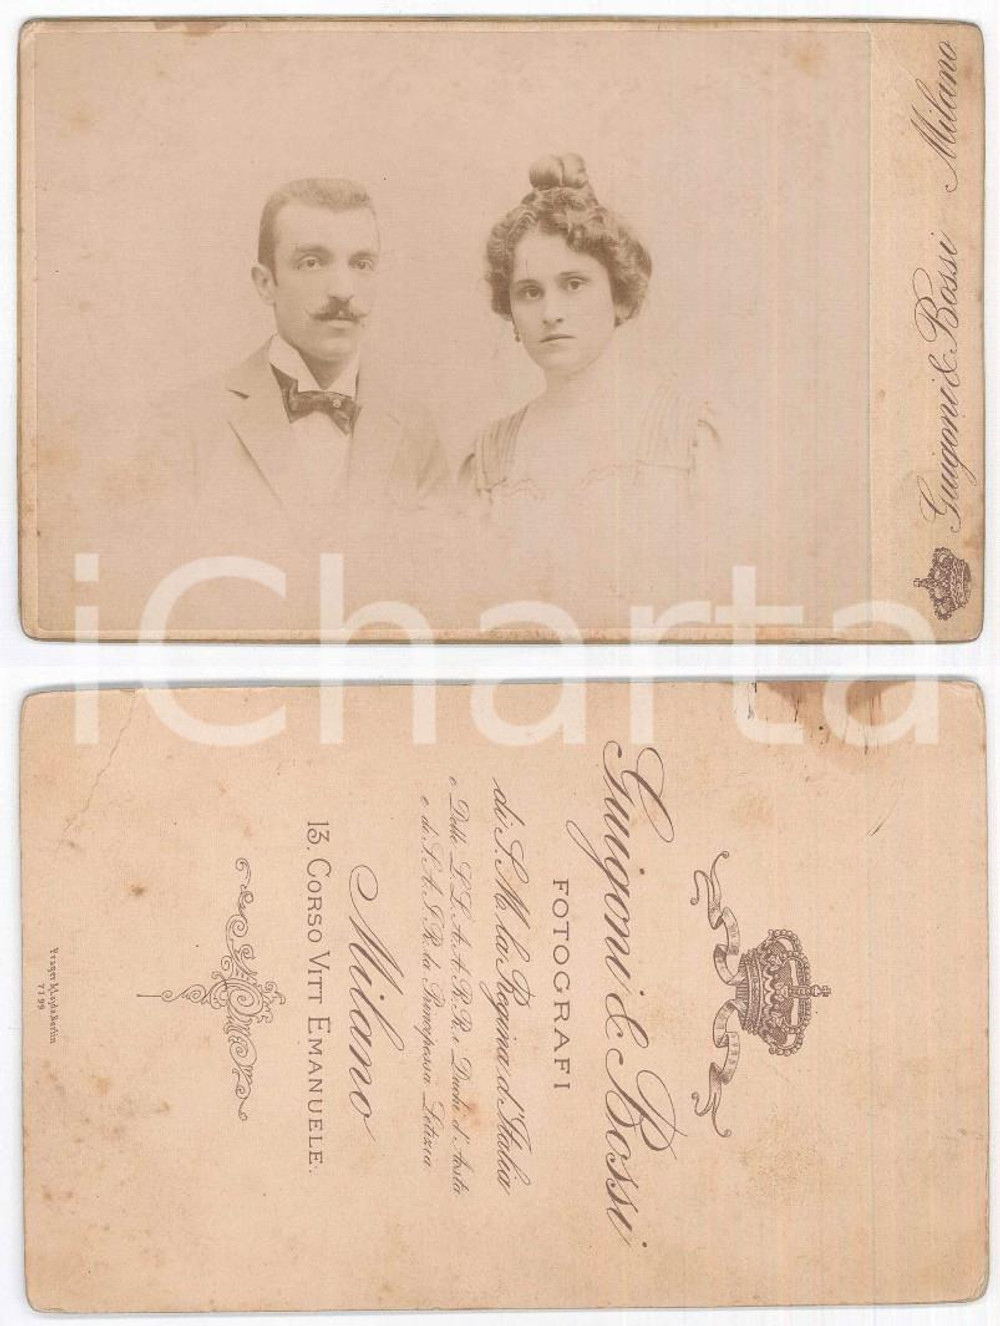 Guigoni & Bossi Milano
iCharta
Guigoni & Bossi
FOTOGRAFI
di S. M. la Regina d'Italia
e Delle L.L. A.A. R.R. i Duchi d'Aosta
e di S. A. I. R. la Principessa Letizia
Milano
13. CORSO VITT EMANUELE.
7199